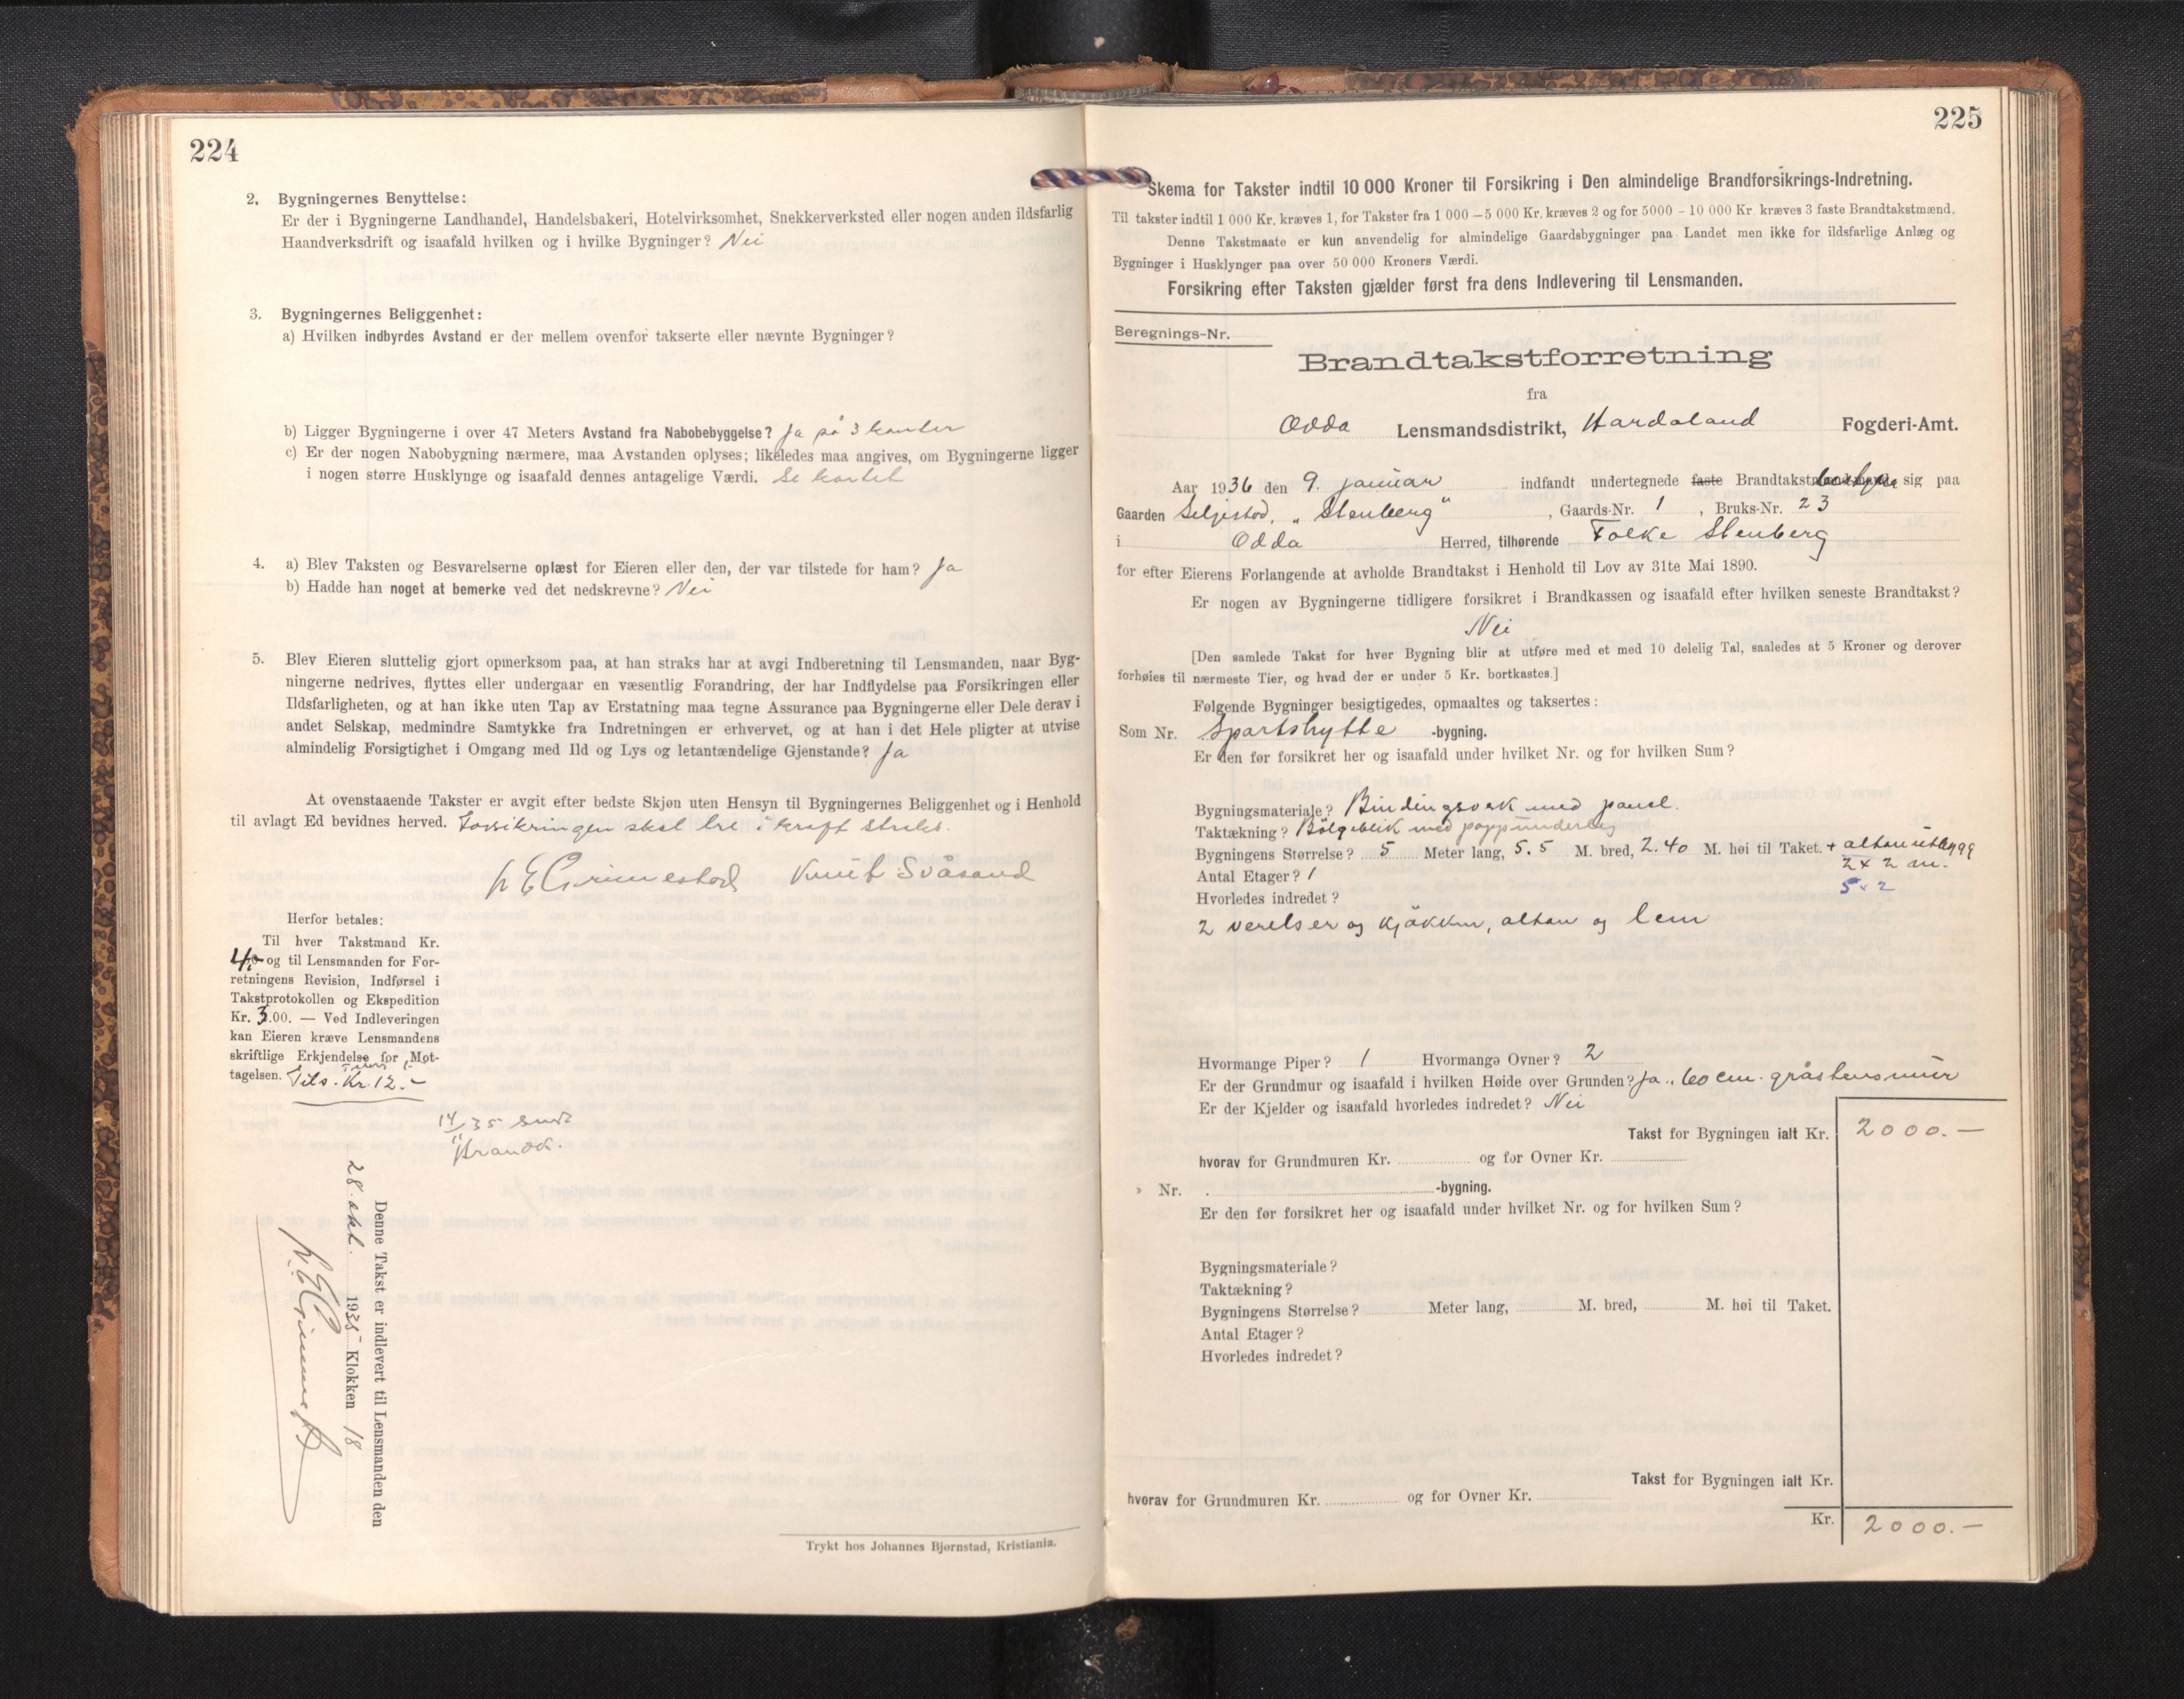 224
2. Bygningernes Benyttelse:
Er der i Bygningerne Landhandel, Handelsbakeri, Hotelvirksomhet, Snekkerverksted eller nogen anden ildsfarlig
Haandverksdrift og isaafald hvilken og i hvilke Bygninger? Nei
3. Bygningernes Beliggenhet:
a) Hvilken indbyrdes Avstand er der mellem ovenfor takserte eller nævnte Bygninger?
b) Ligger Bygningerne i over 47 Meters Avstand fra Nabobebyggelse? Ja på 3 kanter
c) Er der nogen Nabobygning nærmere, maa Avstanden oplyses; likeledes maa angives, om Bygningerne ligger
i nogen større Husklynge og isaafald dennes antagelige Værdi. Se kartet
4. a) Blev Taksten og Besvarelserne oplæst for Eieren eller den, der var tilstede for ham? Ja
b) Hadde han noget at bemerke ved det nedskrevne? Nei
5. Blev Eieren sluttelig gjort opmerksom paa, at han straks har at avgi Indberetning til Lensmanden, naar Byg-
ningerne nedrives, flyttes eller undergaar en væsentlig Forandring, der har Indflydelse paa Forsikringen eller
Ildsfarligheten, og at han ikke uten Tap av Erstatning maa tegne Assurance paa Bygningerne eller Dele derav i
andet Selskap, medmindre Samtykke fra Indretningen er erhvervet, og at han i det Hele pligter at utvise
almindelig Forsigtighet i Omgang med Ild og Lys og letantændelige Gjenstande? Ja
At ovenstaaende Takster er avgit efter bedste Skjøn uten Hensyn til Bygningernes Beliggenhet og i Henhold
til avlagt Ed bevidnes herved. Forsikringen skal tre i kraft straks.
Grimestad Knut Svåsand
Herfor betales:
Til hver Takstmand Kr.
4,- og til Lensmanden for For-
retningens Revision, Indførsel i
Takstprotokollen og Ekspedition
Kr. 3.00. — Ved Indleveringen
kan Eieren kræve Lensmandens
skriftlige Erkjendelse for Mot-
tagelsen. Tils. Kr. 12.-
14/11 35 sendt
Brandk.
Denne Takst er indlevert til Lensmanden den
28. okt. 1935 Klokken 18
Trykt hos Johannes Bjørnstad, Kristiania.
225
Skema for Takster indtil 10 000 Kroner til Forsikring i Den almindelige Brandforsikrings-Indretning.
Til takster indtil 1 000 Kr. kræves 1, for Takster fra 1 000 – 5 000 Kr. kræves 2 og for 5000 - 10 000 Kr kræves 3 faste Brandtakstmænd.
Denne Takstmaate er kun anvendelig for almindelige Gaardsbygninger paa Landet men ikke for ildsfarlige Anlæg og
Bygninger i Husklynger paa over 50 000 Kroners Værdi.
Forsikring efter Taksten gjælder først fra dens Indlevering til Lensmanden.
Beregnings-Nr.
Brandtakstforretning
fra
Odda Lensmandsdistrikt, Hordaland Fogderi-Amt.
Aar 1936 den 9. januar indfandt undertegnede faste Brandtakst bestyrer sig paa
Gaarden Seljestad, "Stenberg", Gaards-Nr. 1, Bruks-Nr. 23
i Odda Herred, tilhørende Folke Stenberg
for efter Eierens Forlangende at avholde Brandtakst i Henhold til Lov av 31te Mai 1890.
Er nogen av Bygningerne tidligere forsikret i Brandkassen og isaafald efter hvilken seneste Brandtakst?
Nei
[Den samlede Takst for hver Bygning blir at utføre med et med 10 delelig Tal, saaledes at 5 Kroner og derover
forhøies til nærmeste Tier, og hvad der er under 5 Kr. bortkastes.]
Følgende Bygninger besigtigedes, opmaaltes og taksertes:
Som Nr. Sportshytte -bygning.
Er den før forsikret her og isaafald under hvilket Nr. og for hvilken Sum?
Bygningsmateriale? Bindingsverk med panel.
Taktækning? Bölgeblik med pappunderlag
Bygningens Størrelse? 5 Meter lang, 5.5 M. bred, 2.40 M. høi til Taket. + altanutbygg
2 x 2 m.
Antal Etager? 1
5 x 2
Hvorledes indredet?
2 verelser og kjökken, altan og lem
Hvormange Piper? 1 Hvormange Ovner? 2
Er der Grundmur og isaafald i hvilken Høide over Grunden? Ja, 60 cm. gråstensmur
Er der Kjelder og isaafald hvorledes indredet? Nei
Takst for Bygningen ialt Kr. 2000.—
hvorav for Grundmuren Kr. og for Ovner Kr.
» Nr. -bygning.
Er den før forsikret her og isaafald under hvilket Nr. og for hvilken Sum?
Bygningsmateriale?
Taktækning?
Bygningens Størrelse? Meter lang, M. bred, M. høi til Taket.
Antal Etager?
Hvorledes indredet?
Takst for Bygningen ialt Kr.
hvorav for Grundmuren Kr. og for Ovner Kr.
Kr. 2000.—